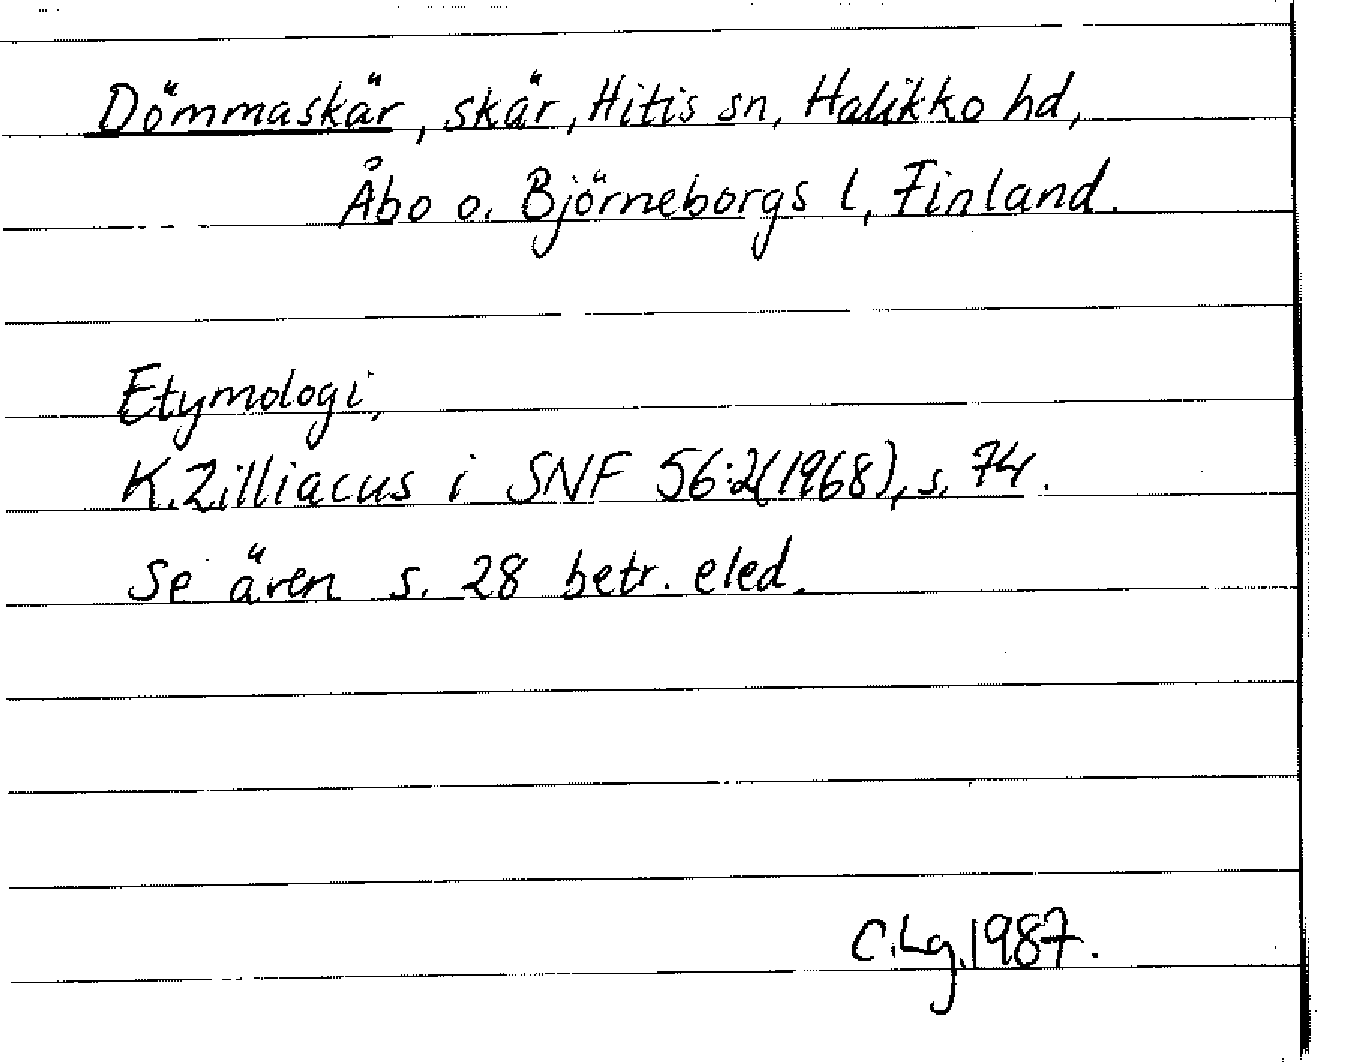 Dömmaskär, skär, Hitis sn, Halikko hd,
Åbo o. Björneborgs l, Finland.
Etymologi,
K. Zilliacus i SNF 56:2(1968), s. 74.
Se även s. 28 betr. eled.
C.Lg.1987.